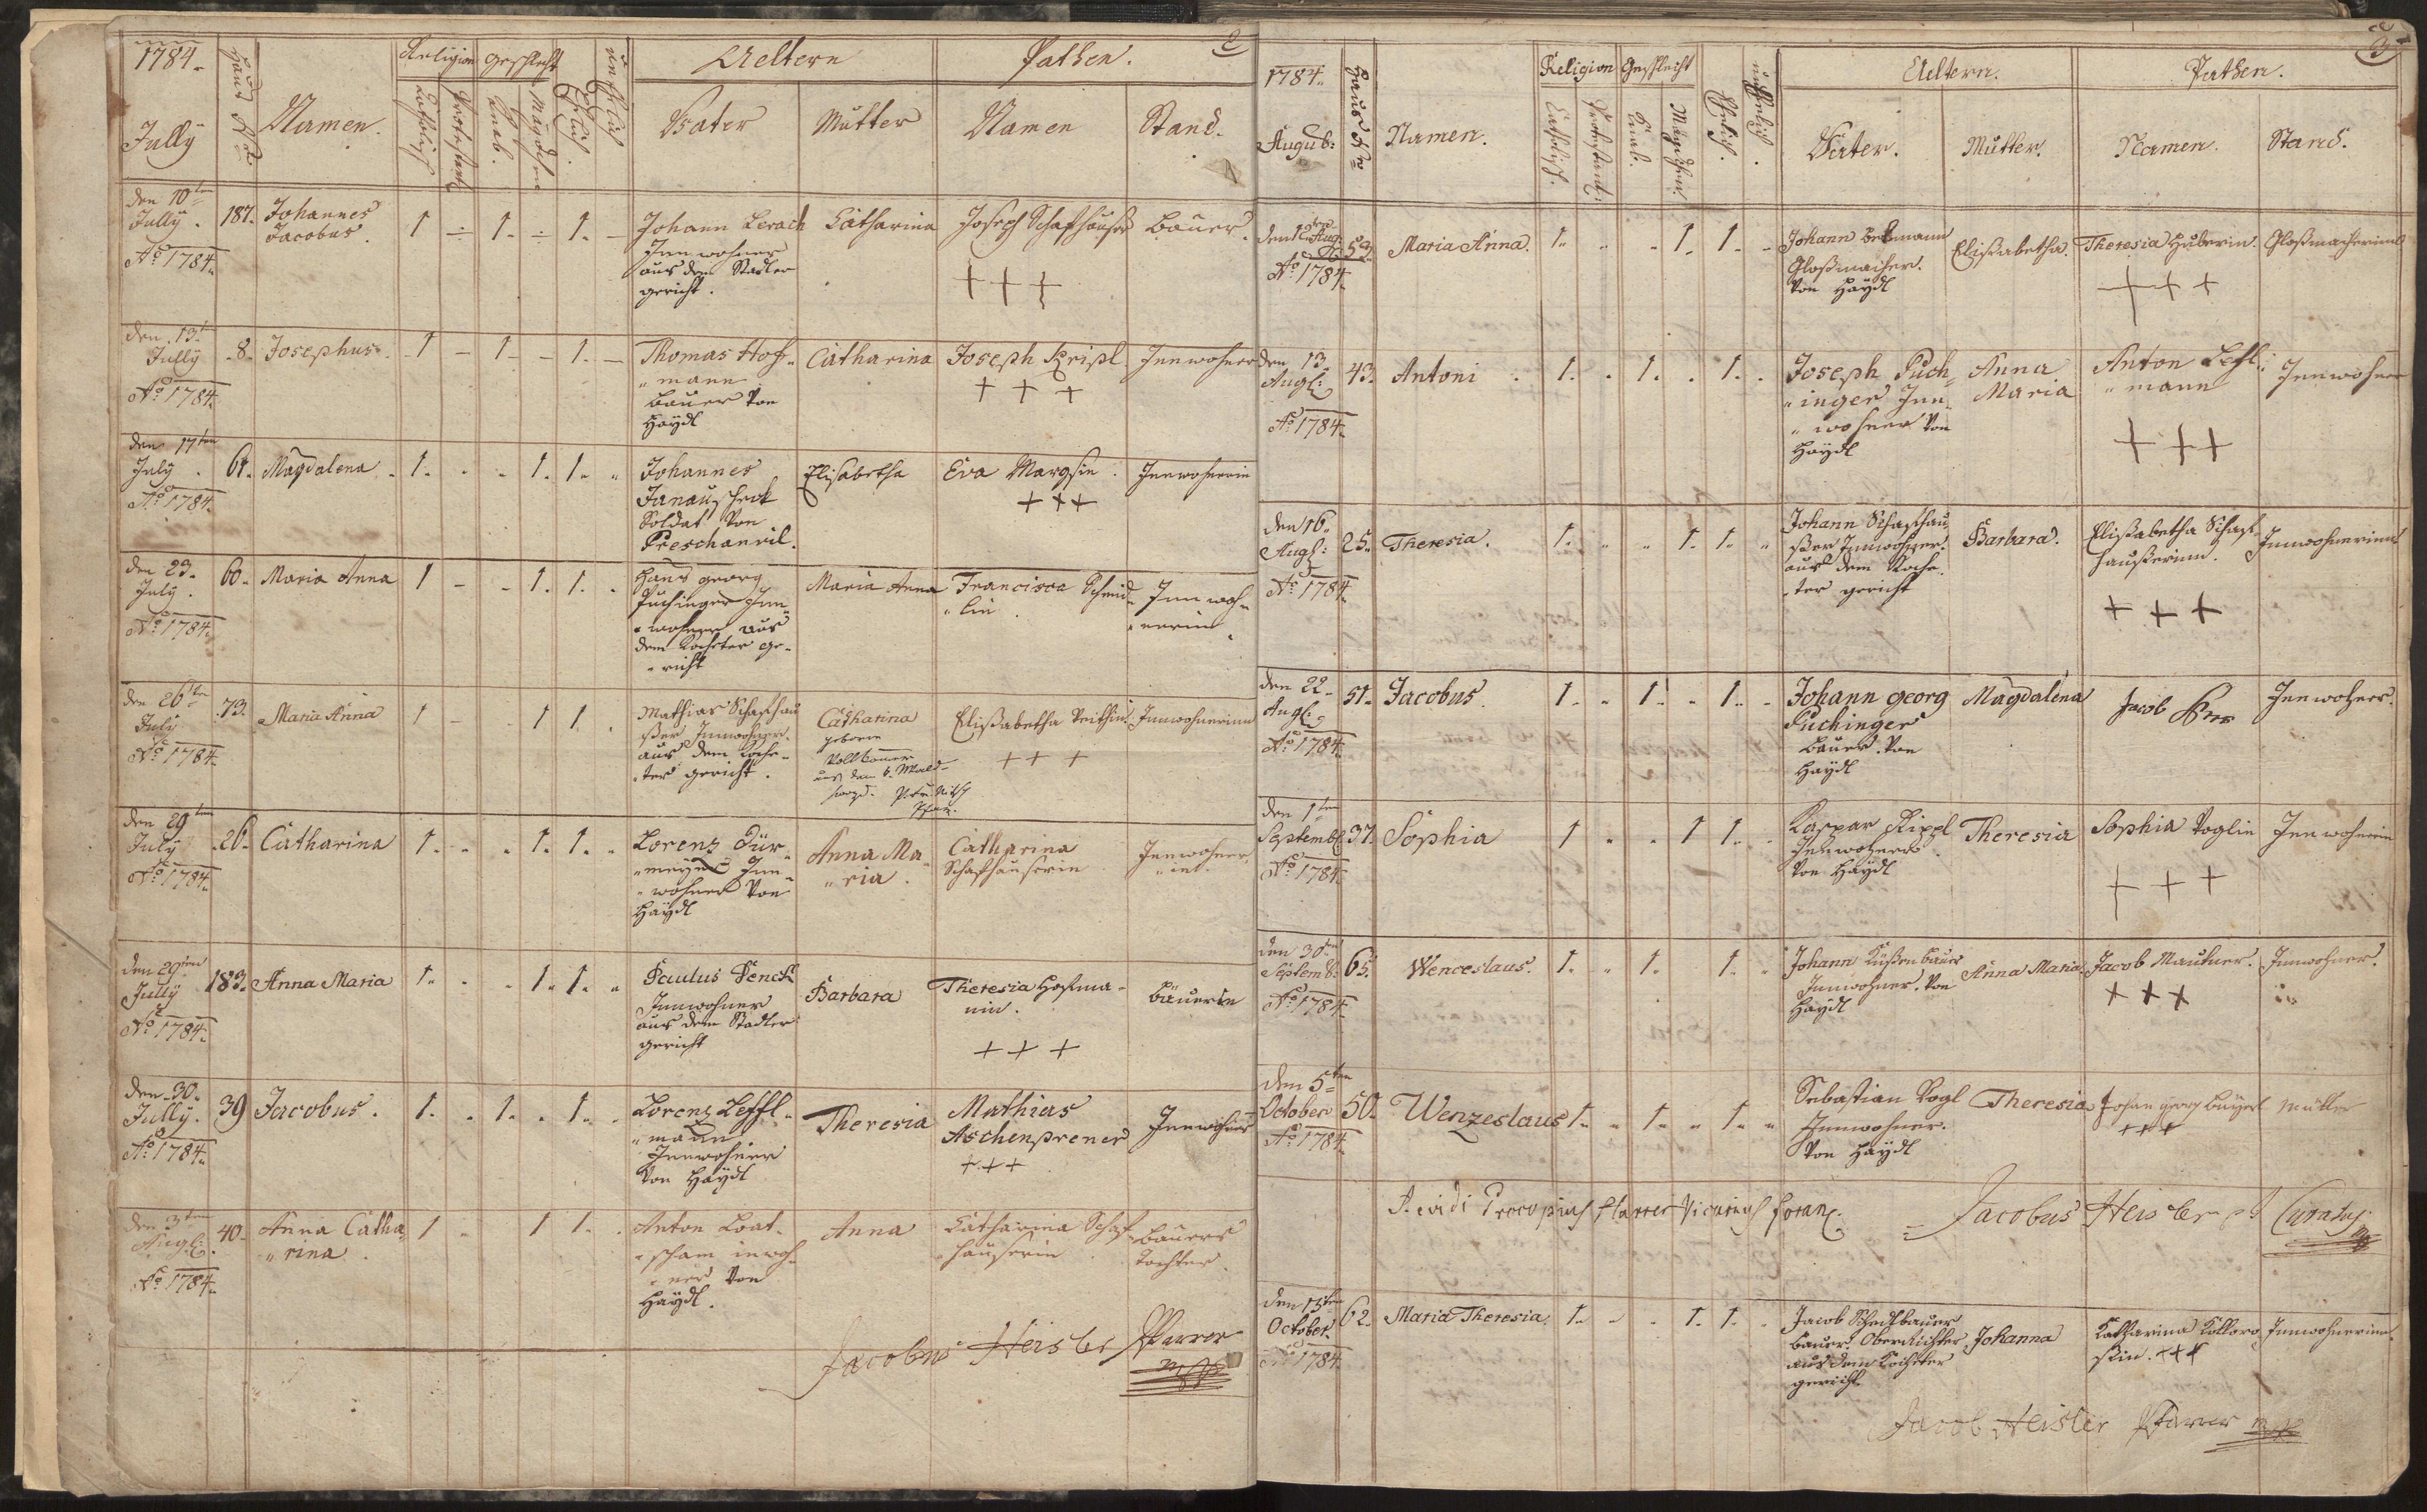 2
1784.
Jully
Haus Nro
Namen.
Religion
Catholisch
Protestant
Geschlecht
Knab.
Mägdchen
Ehelich
unehelich
Aeltern
Vater
Mutter
Pathen.
Namen
Stand.
den 10ten
Jully.
Ao 1784.
187.
Johannes
Jacobus.
1 - 1. - 1. -
Johann Lerach
Innwohner
aus dem Stadler
gericht.
Catharina
Joseph Schafhauser
+++
Bauer.
den 13t
Jully
Ao 1784.
8.
Josephus.
1 - 1 - 1. -
Thomas Hof-
"mann
Bauer von
Haydl
Catharina
Joseph Kripl
+ + +
Innwohner
den 17ten
July.
Ao 1784.
61.
Magdalena
1. . . 1. 1. "
Johannes
Janauscheck
Soldat von
Preschanvil.
Elisabetha
Eva Margsin.
+++
Innwohnerin
den 23.
July.
Ao 1784.
60.
Maria Anna
1 - - 1. 1. .
Hans georg
Puchinger Inn-
"wohner aus
dem Kocheter ge-
"richt
Maria Anna
Francisca Schmid-
"lin.
Innwoh-
"nerin
den 26ten
July
Ao 1784.
73.
Maria Anna
1 - 1 1. .
Mathias Schafhau
ßer Innwohner.
aus dem Koche-
"ter gericht.
Catharina
geborne
Vollbauer
aus dem k. Wald-
Elißabetha
Innwohnerinn
+ + +
den 29ten
July
Ao 1784.
26.
Catharina
1. . . 1. 1. "
Lorenz Dür-
"meyer Inn-
"wohner von
Haydl
Anna Ma-
"ria.
Catharina
Schafhauserin
Innwohner-
"inn.
den 29ten
Jully
Ao 1784.
183.
Anna Maria
1. . . 1. 1. "
Paulus Denck
Innwohner
aus dem Stadler
gericht
Barbara
Theresia Hofma-
nin.
+ + +
Bäuerin
den 30.
Jully.
Ao 1784.
39
Jacobus.
1. . 1. . 1. .
Lorenz Leffl-
"mann
Innwohner
von Haydl
Theresia
Mathias
Aschenprener
+++
Innwohner
den 3ten
Augl:
Ao 1784.
40.
Anna Catha-
"rina.
1 - 1 1. .
Anton Loat-
"scham inwoh-
"ner von
Haydl.
Anna
Catharina Schaf-
"hauserin
Bauers
Tochter.
Jacobus Heisler Pfarrer
mpp
3
1784.
August:
Haus Nro
Namen.
Religion
Catholisch.
Protestant:
Geschlecht
Knab.
Mägdchen.
Ehelich.
unehelich.
Aeltern.
Vater.
Mutter.
Pathen.
Namen.
Stand.
Aug:
Ao 1784.
59.
Maria Anna.
1. . . 1. 1. -
Johann Bekmann
Gloßmacher.
Von Haydl
Elißabetha.
Theresia Huberin.
+++
Gloßmacherinn
den 13.
Augl:
Ao 1784.
43.
Antoni
1. . 1. . 1. .
Joseph Puch-
"inger Inn-
"wohner von
Haydl
Anna
Maria
Anton Lefl:
"mann
+++
Innwohner
den 16.
Augs:
Ao 1784.
25.
Theresia.
1. " " 1. 1. "
Johann Schafhau
ßer Innwohner.
aus dem Koche-
"ter gericht
Barbara.
Elißabetha Schaf-
haußerinn.
+ + +
Innwohnerinn
den 22.
Augl:
Ao 1784.
51.
Jacobus.
1. " 1. " 1. -
Johann georg
Puchinger
Bauer. Von
Haydl
Magdalena
Jacob
Innwohner.
den 1ten
Septemb:
Ao 1784.
37.
Sophia
1 " " 1 1. .
Kaspar Kippl
Innwohner.
Von Haydl
Theresia
Sophia Voglin
+ + +
Innwohnerin
den 30ten
Septemb:
Ao 1784.
65.
Wenceslaus.
1. " 1. 1. "
Johann Küßenbauer
Innwohner. Von
Haydl
Anna Maria
Jacob Mauhner.
+ + +
Innwohner.
den 5ten
October
Ao 1784.
50.
Wenzeslaus
1. " 1. " 1. "
Sebastian Vogl
Innwohner.
Von Haydl
Theresia
Johan georg Bayerl
+++
Müller
Revidi Procopius Pfarrer Vicarius foran:
Jacobus Heisler Curatus
mp
den 13ten
October.
Ao 1784.
62.
Maria Theresia.
1. . . 1. 1. .
Jacob Schechlbauer
Bauer. Oberrichter
aus dem Kocheter
gericht
Johanna
Katharina Kolloro
skin. +++
Innwohnerinn.
Jacob Heisler Pfarrer mpp